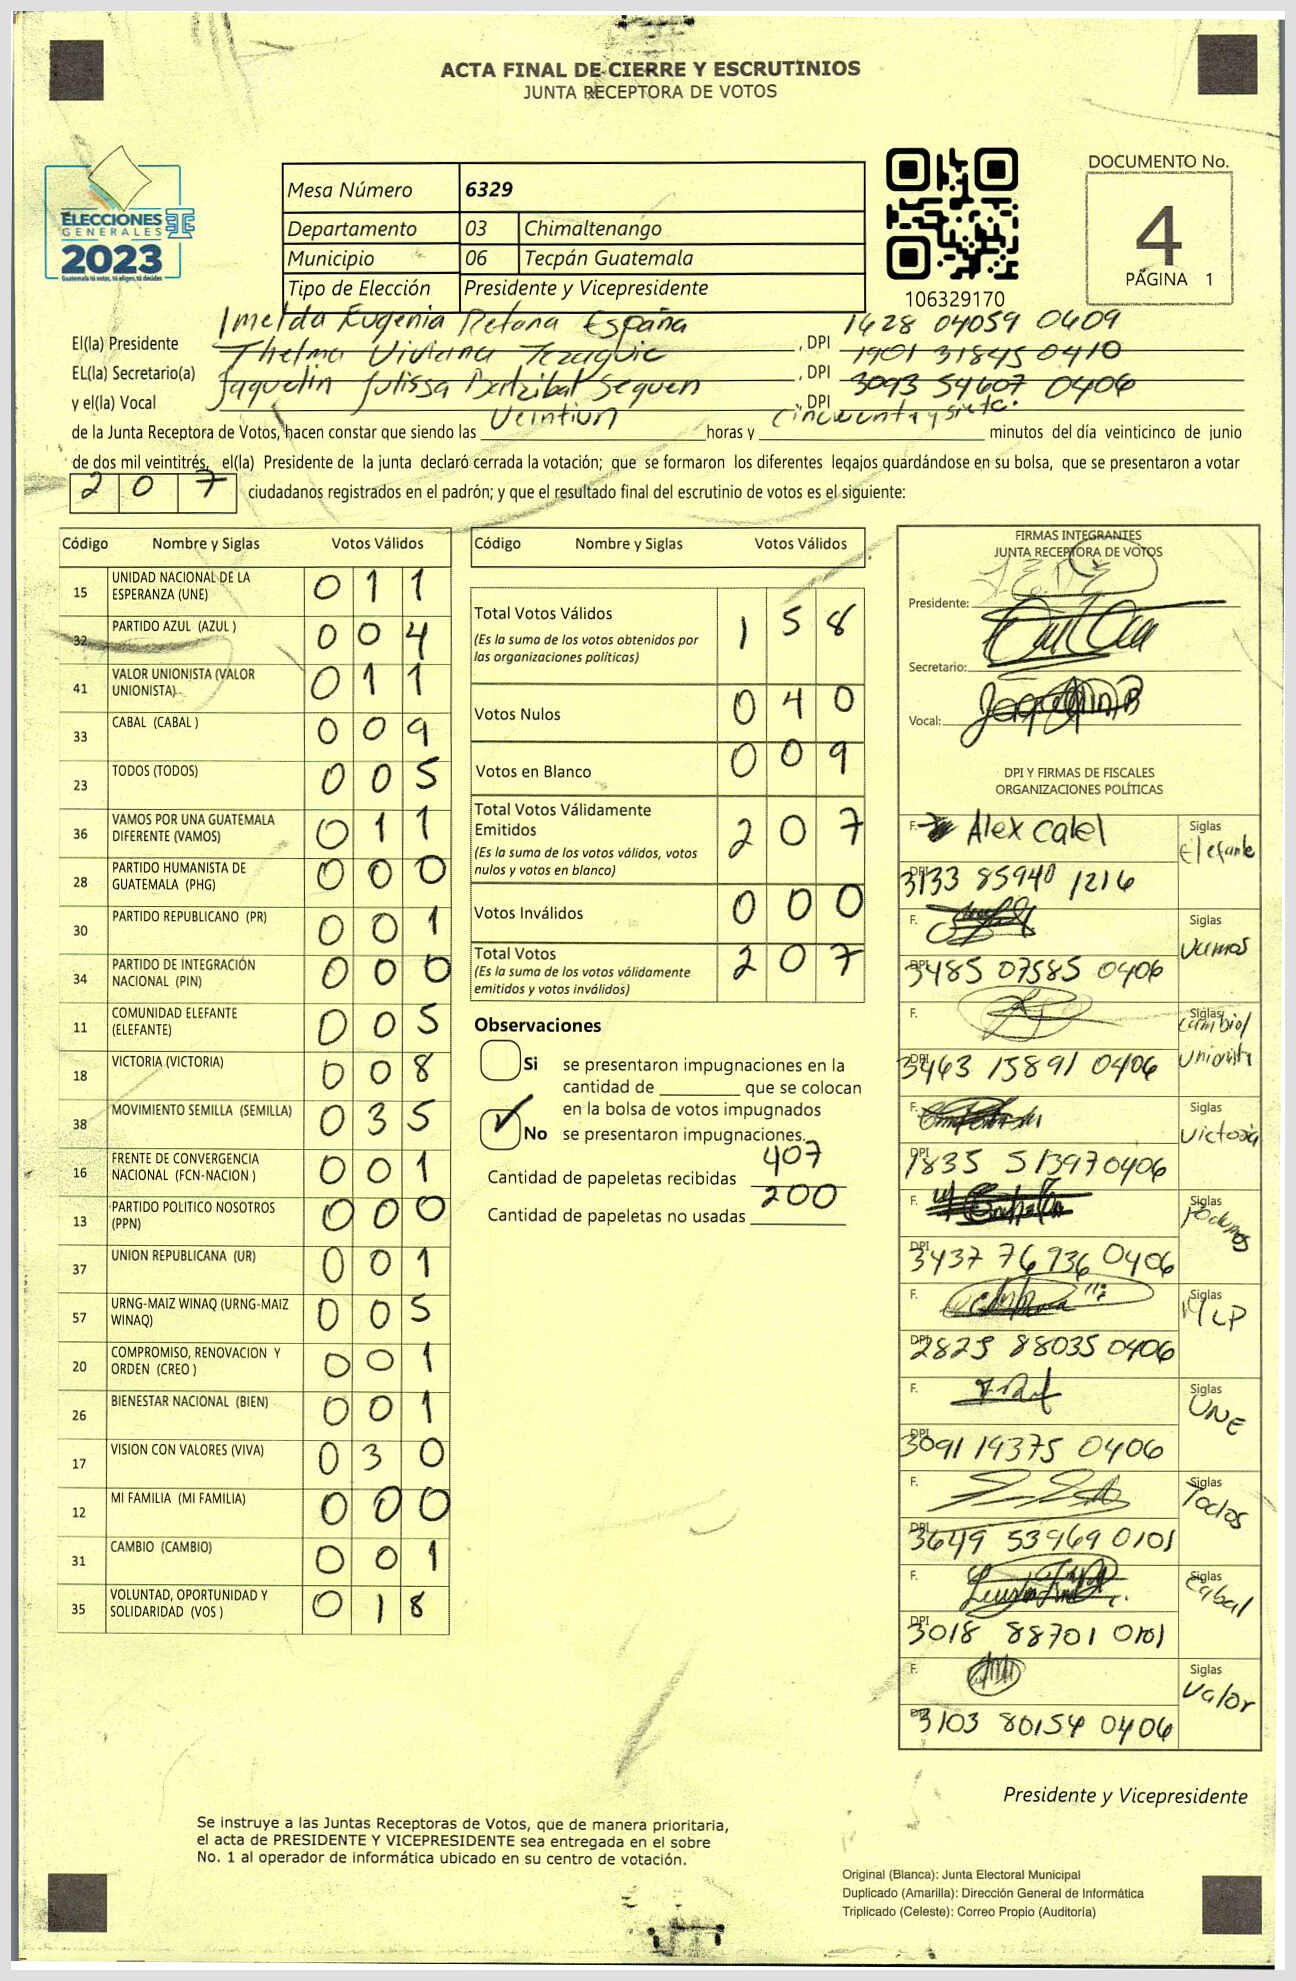 ACTA FINAL DE CIERRE Y ESCRUTINIOS
JUNTA RECEPTORA DE VOTOS
ELECCIONES
GENERALES
2023
Guatemala tú votas, tú eliges, tú decides
Mesa Número 6329
Departamento 03 Chimaltenango
Municipio 06 Tecpán Guatemala
Tipo de Elección Presidente y Vicepresidente
106329170
DOCUMENTO No.
4
PÁGINA 1
El(la) Presidente Imelda Eugenia Retana España, DPI 1628 04059 0609
EL(la) Secretario(a) Thelma Viviana, DPI 1901 31845 0410
y el(la) Vocal Jaquelin Julissa Batzibal Sequen, DPI 3093 54607 0406
de la Junta Receptora de Votos, hacen constar que siendo las Veintiun horas y cincuenta y siete minutos del día veinticinco de junio
de dos mil veintitrés, el(la) Presidente de la junta declaró cerrada la votación; que se formaron los diferentes legajos guardándose en su bolsa, que se presentaron a votar
207 ciudadanos registrados en el padrón; y que el resultado final del escrutinio de votos es el siguiente:
Código Nombre y Siglas Votos Válidos
15 UNIDAD NACIONAL DE LA ESPERANZA (UNE) 011
32 PARTIDO AZUL (AZUL ) 004
41 VALOR UNIONISTA (VALOR UNIONISTA) 011
33 CABAL (CABAL ) 009
23 TODOS (TODOS) 005
36 VAMOS POR UNA GUATEMALA DIFERENTE (VAMOS) 011
28 PARTIDO HUMANISTA DE GUATEMALA (PHG) 000
30 PARTIDO REPUBLICANO (PR) 001
34 PARTIDO DE INTEGRACIÓN NACIONAL (PIN) 000
11 COMUNIDAD ELEFANTE (ELEFANTE) 005
18 VICTORIA (VICTORIA) 008
38 MOVIMIENTO SEMILLA (SEMILLA) 035
16 FRENTE DE CONVERGENCIA NACIONAL (FCN-NACION ) 001
13 PARTIDO POLITICO NOSOTROS (PPN) 000
37 UNION REPUBLICANA (UR) 001
57 URNG-MAIZ WINAQ (URNG-MAIZ WINAQ) 005
20 COMPROMISO, RENOVACION Y ORDEN (CREO ) 001
26 BIENESTAR NACIONAL (BIEN) 001
17 VISION CON VALORES (VIVA) 030
12 MI FAMILIA (MI FAMILIA) 000
31 CAMBIO (CAMBIO) 001
35 VOLUNTAD, OPORTUNIDAD Y SOLIDARIDAD (VOS ) 018
Código Nombre y Siglas Votos Válidos
Total Votos Válidos 158
(Es la suma de los votos obtenidos por
las organizaciones políticas)
Votos Nulos 040
Votos en Blanco 009
Total Votos Válidamente
Emitidos 207
(Es la suma de los votos válidos, votos
nulos y votos en blanco)
Votos Inválidos 000
Total Votos 207
(Es la suma de los votos válidamente
emitidos y votos inválidos)
Observaciones
Si se presentaron impugnaciones en la
cantidad de ________ que se colocan
en la bolsa de votos impugnados
No se presentaron impugnaciones.
Cantidad de papeletas recibidas 407
Cantidad de papeletas no usadas 200
FIRMAS INTEGRANTES
JUNTA RECEPTORA DE VOTOS
Presidente:
Secretario:
Vocal:
DPI Y FIRMAS DE FISCALES
ORGANIZACIONES POLÍTICAS
F. Alex Calel Siglas Elefante
DPI 3133 85940 1216
F. Siglas vamos
DPI 3485 07585 0406
F. Siglas cambio/ unionista
DPI 3463 15891 0406
F. Siglas victoria
DPI 1835 51397 0406
F. Siglas Podemos
DPI 3437 76936 0406
F. Siglas MLP
DPI 2825 88035 0406
F. Siglas UNE
DPI 3091 19375 0406
F. Siglas Todos
DPI 3649 53969 0101
F. Siglas Cabal
DPI 3018 88701 0101
F. Siglas valor
DPI 3103 80154 0406
Presidente y Vicepresidente
Se instruye a las Juntas Receptoras de Votos, que de manera prioritaria,
el acta de PRESIDENTE Y VICEPRESIDENTE sea entregada en el sobre
No. 1 al operador de informática ubicado en su centro de votación.
Original (Blanca): Junta Electoral Municipal
Duplicado (Amarilla): Dirección General de Informática
Triplicado (Celeste): Correo Propio (Auditoría)